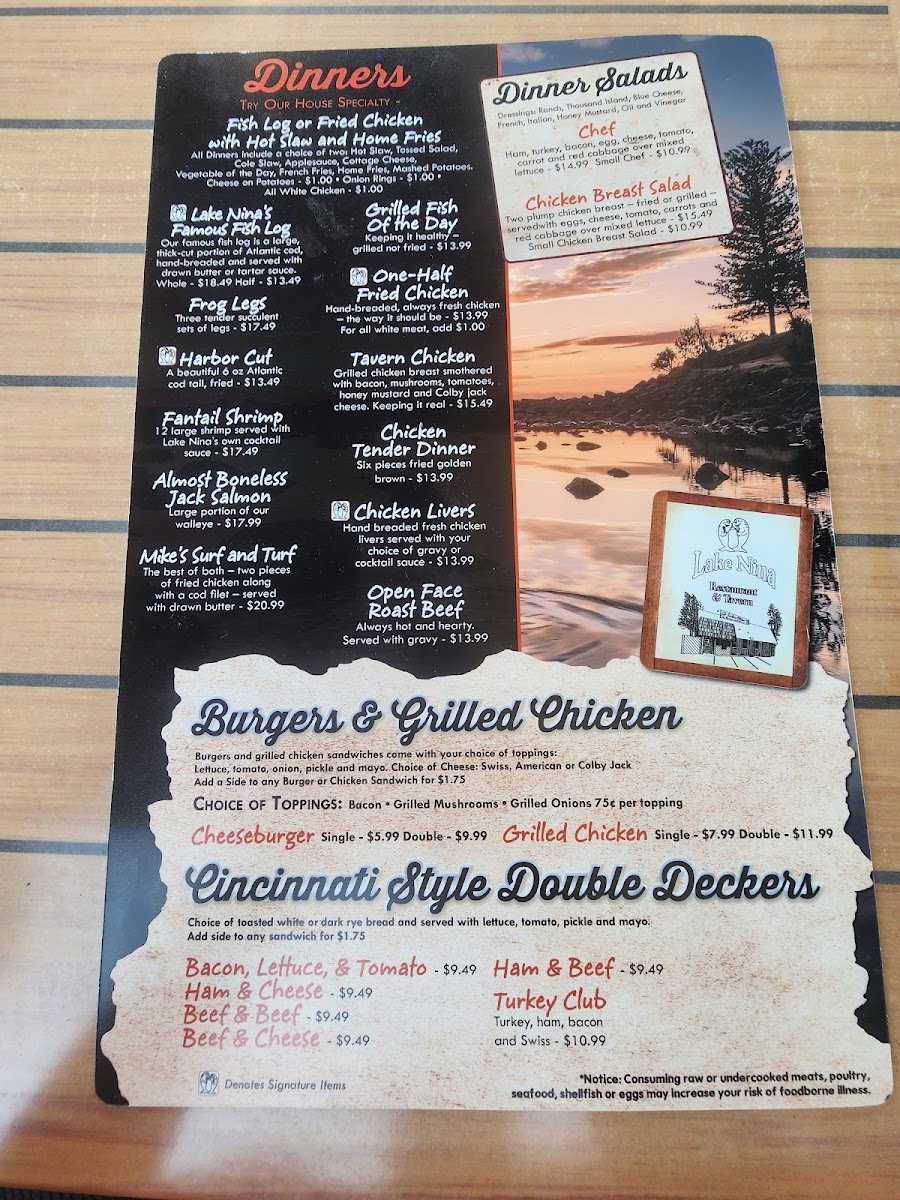 Dinners
Try Our House Specialty -
Fish Log or Fried Chicken
with Hot Slaw and Home Fries
All Dinners include a choice of two: Hot Slaw, Tossed Salad,
Cole Slaw, Applesauce, Cottage Cheese,
Vegetable of the Day, French Fries, Home Fries, Mashed Potatoes.
Cheese on Potatoes - $1.00 • Onion Rings - $1.00 •
All White Chicken - $1.00
Lake Nina's
Famous Fish Log
Our famous fish log is a large,
thick-cut portion of Atlantic cod,
hand-breaded and served with
drawn butter or tartar sauce.
Whole - $18.49 Half - $13.49
Frog Legs
Three tender succulent
sets of legs - $17.49
Harbor Cut
A beautiful 6 oz Atlantic
cod tail, fried - $13.49
Fantail Shrimp
12 large shrimp served with
Lake Nina's own cocktail
sauce - $17.49
Almost Boneless
Jack Salmon
Large portion of our
walleye - $17.99
Mike's Surf and Turf
The best of both – two pieces
of fried chicken along
with a cod filet – served
with drawn butter - $20.99
Grilled Fish
Of the Day
Keeping it healthy –
grilled not fried - $13.99
One-Half
Fried Chicken
Hand-breaded, always fresh chicken
– the way it should be - $13.99
For all white meat, add $1.00
Tavern Chicken
Grilled chicken breast smothered
with bacon, mushrooms, tomatoes,
honey mustard and Colby jack
cheese. Keeping it real - $15.49
Chicken
Tender Dinner
Six pieces fried golden
brown - $13.99
Chicken Livers
Hand breaded fresh chicken
livers served with your
choice of gravy or
cocktail sauce - $13.99
Open Face
Roast Beef
Always hot and hearty.
Served with gravy - $13.99
Dinner Salads
Dressings: Ranch, Thousand Island, Blue Cheese,
French, Italian, Honey Mustard, Oil and Vinegar
Chef
Ham, turkey, bacon, egg, cheese, tomato,
carrot and red cabbage over mixed
lettuce - $14.99 Small Chef - $10.99
Chicken Breast Salad
Two plump chicken breast – fried or grilled –
servedwith eggs, cheese, tomato, carrots and
red cabbage over mixed lettuce - $15.49
Small Chicken Breast Salad - $10.99
Lake Nina
Restaurant
& Tavern
Burgers & Grilled Chicken
Burgers and grilled chicken sandwiches come with your choice of toppings:
Lettuce, tomato, onion, pickle and mayo. Choice of Cheese: Swiss, American or Colby Jack
Add a Side to any Burger or Chicken Sandwich for $1.75
Choice of Toppings: Bacon • Grilled Mushrooms • Grilled Onions 75¢ per topping
Cheeseburger Single - $5.99 Double - $9.99 Grilled Chicken Single - $7.99 Double - $11.99
Cincinnati Style Double Deckers
Choice of toasted white or dark rye bread and served with lettuce, tomato, pickle and mayo.
Add side to any sandwich for $1.75
Bacon, Lettuce, & Tomato - $9.49
Ham & Cheese - $9.49
Beef & Beef - $9.49
Beef & Cheese - $9.49
Ham & Beef - $9.49
Turkey Club
Turkey, ham, bacon
and Swiss - $10.99
Denotes Signature Items
*Notice: Consuming raw or undercooked meats, poultry,
seafood, shellfish or eggs may increase your risk of foodborne illness.